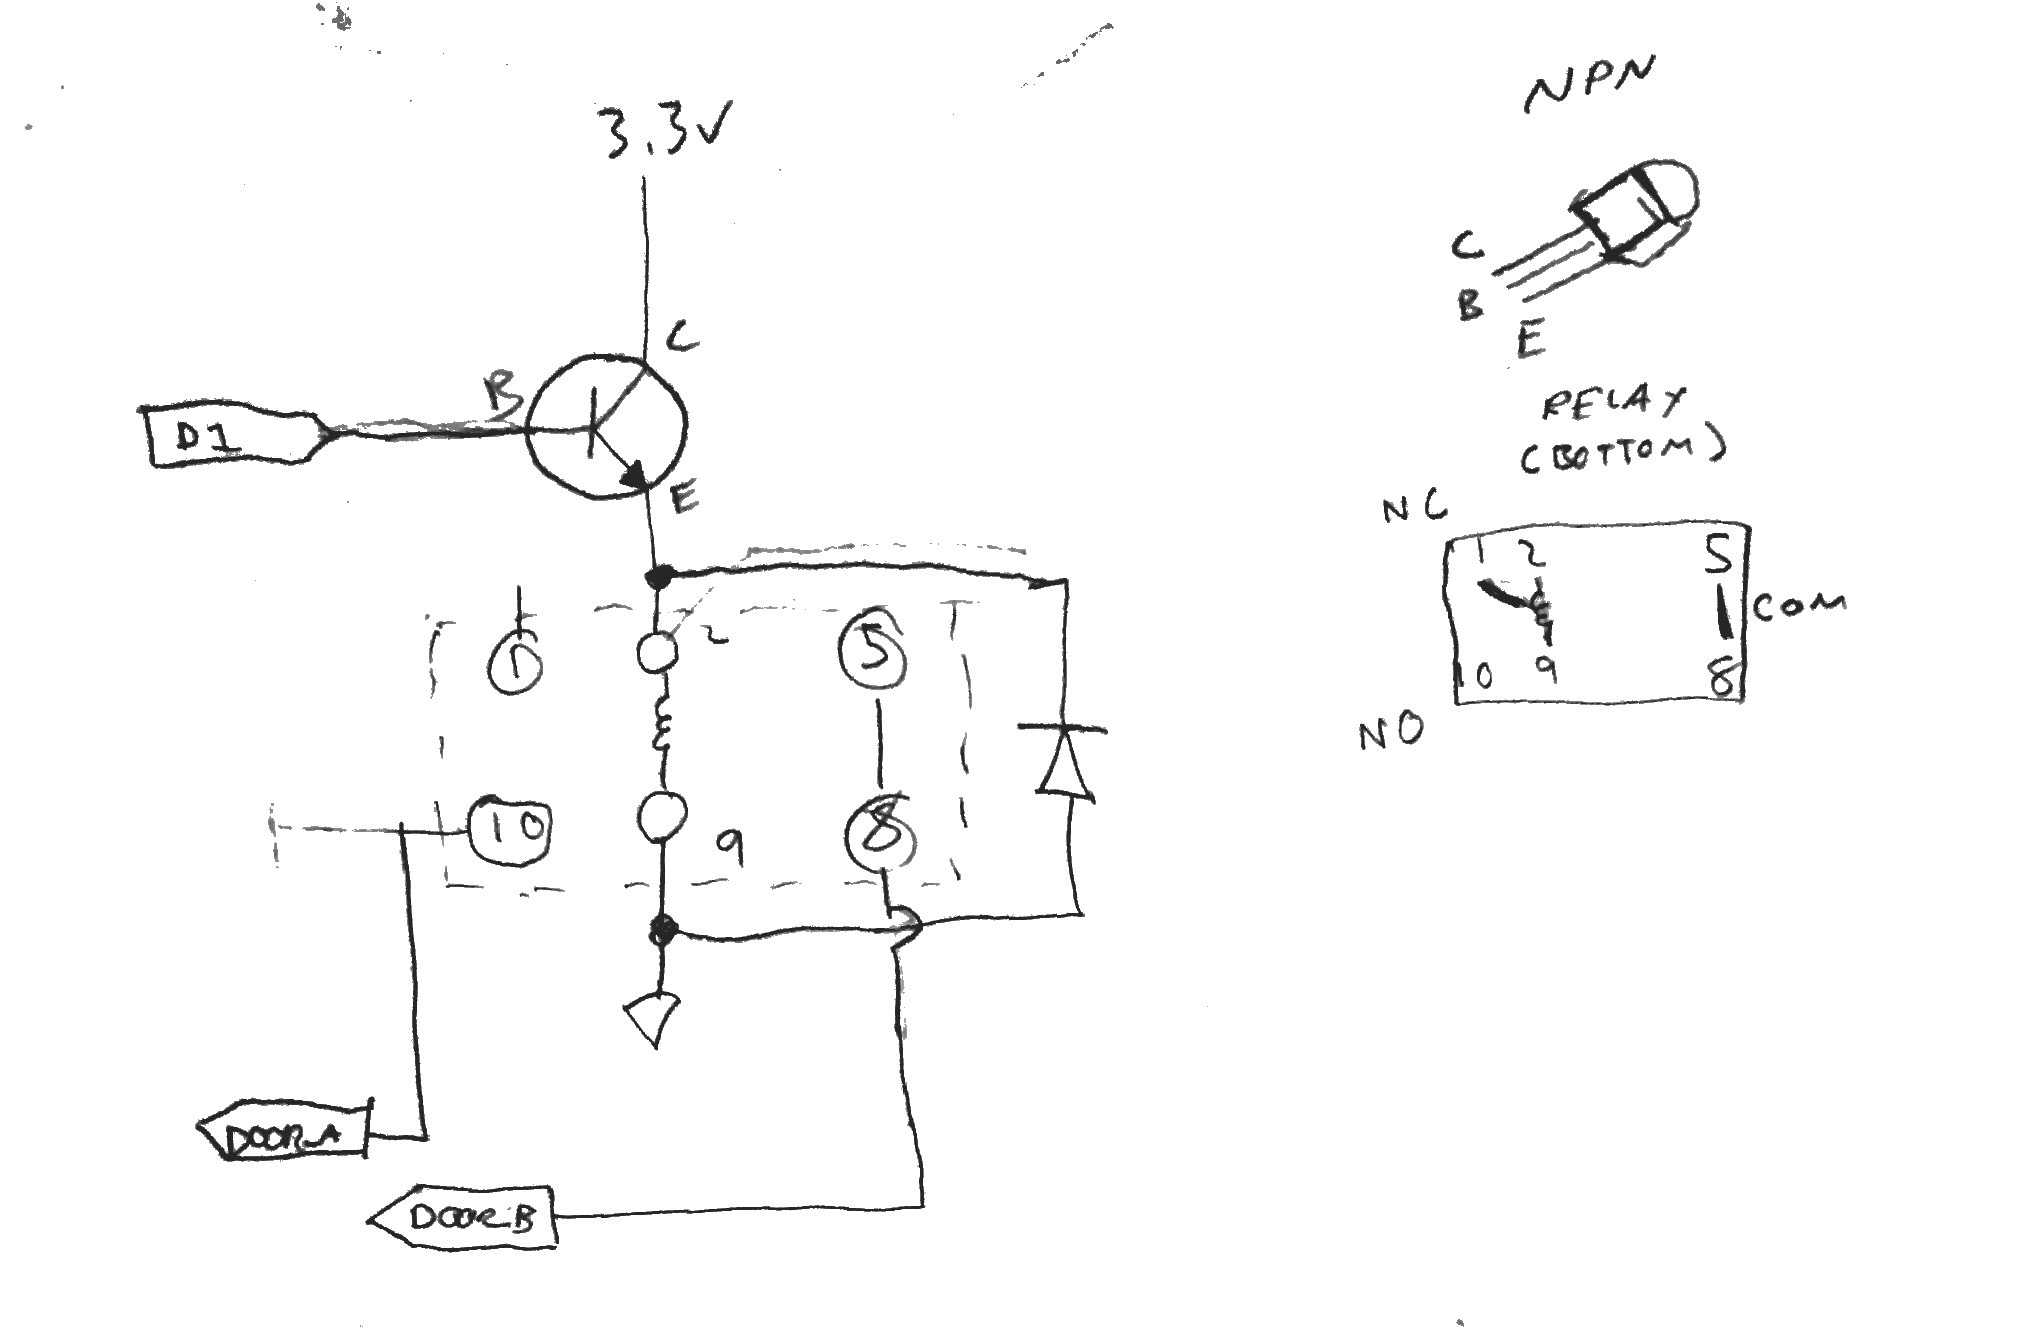 3.3V
C
B
D1
E
1
2
5
10
9
8
DOOR_A
DOOR_B
NPN
C
B
E
RELAY
(BOTTOM)
NC
1 2 5
COM
10 9 8
NO